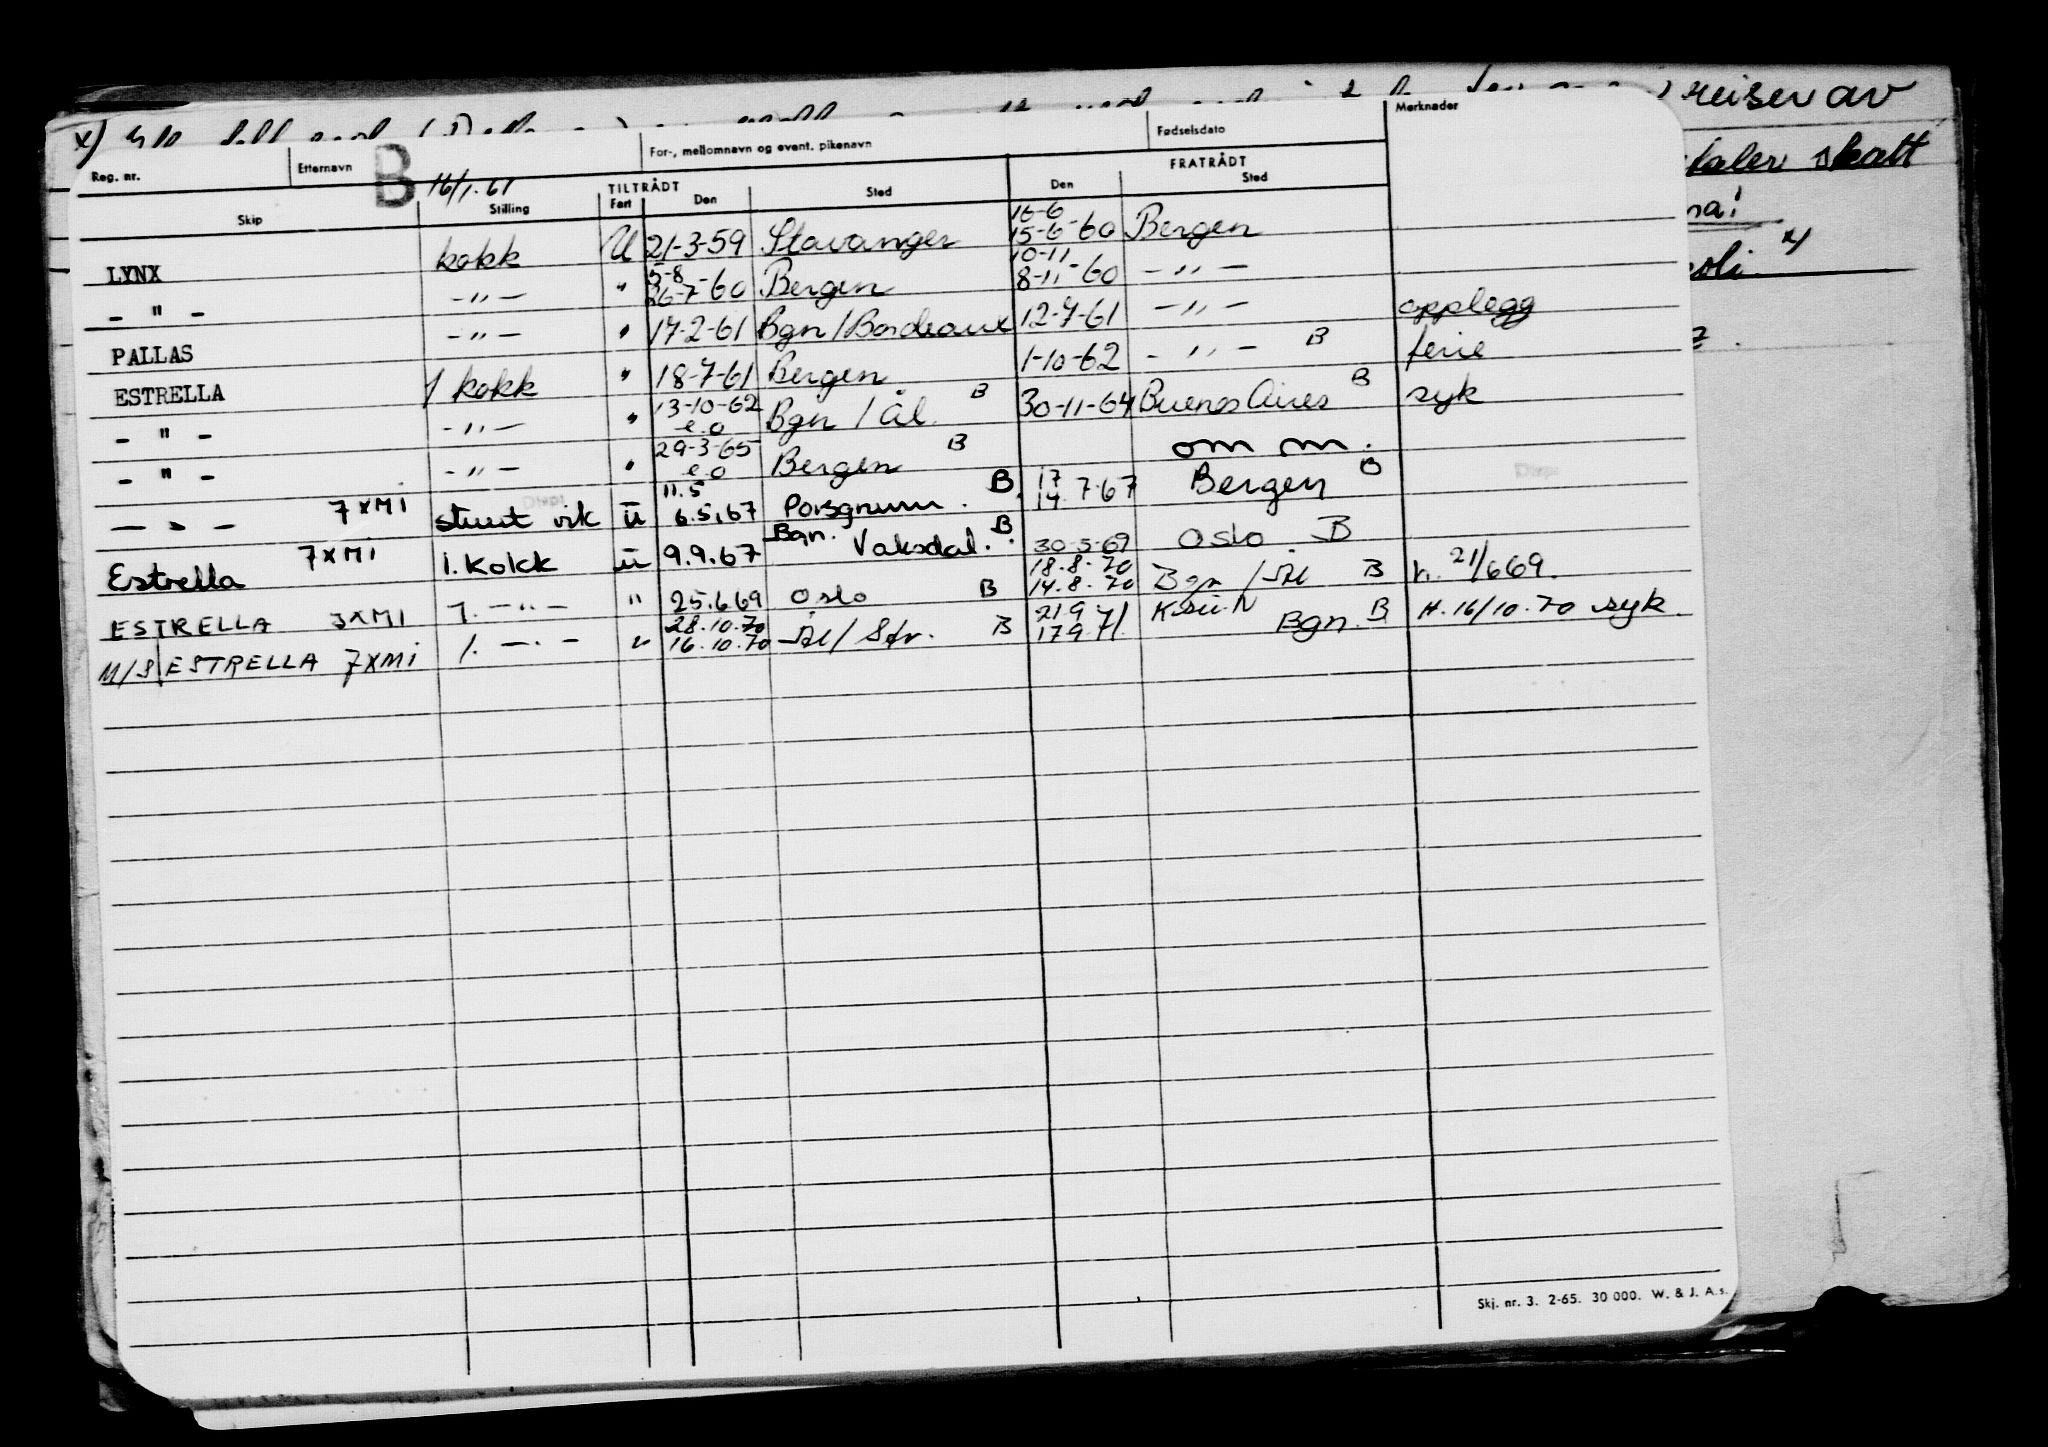 reiser av
skatt
Reg. nr. Etternavn B 16/1.61 For-, mellomnavn og event. pikenavn Fødselsdato Merknader
TILTRÅDT FRATRÅDT
Skip Stilling Fart Den Sted Den Sted
16-6
LYNX kokk U 21-3-59 Stavanger 15-6-60 Bergen
5-8 10-11
- " - - " - " 26-7-60 Bergen 8-11-60 - " -
PALLAS - " - " 17-2-61 Bgn / Bordeaux 12-7-61 - " - opplegg
ESTRELLA 1 kokk " 18-7-61 Bergen 1-10-62 - " - B ferie
- " - - " - " 13-10-62 e.o Bgn / Ål. B 30-11-64 Buenos Aires B syk
- " - - " - " 29-3-65 e.o Bergen B om m.
11.5 17
- " - 7XMI stuert vik u 6.5.67 Porsgrunn. B 14.7.67 Bergen B
Estrella 7XMI 1. kokk u 9.9.67 Bgn. Vaksdal. B 30-5-69 Oslo B
18.8.70
ESTRELLA 3XMI 1. - " - " 25.6.69 Oslo B 14.8.70 Bgn / Ål B h. 21/669.
28.10.70 219
M/S ESTRELLA 7XMI 1. - " - " 16.10.70 Ål / Sfr. B 179.71. Bgn. B H. 16/10.70 syk.
Skj. nr. 3. 2-65. 30 000. W. & J. A.s.